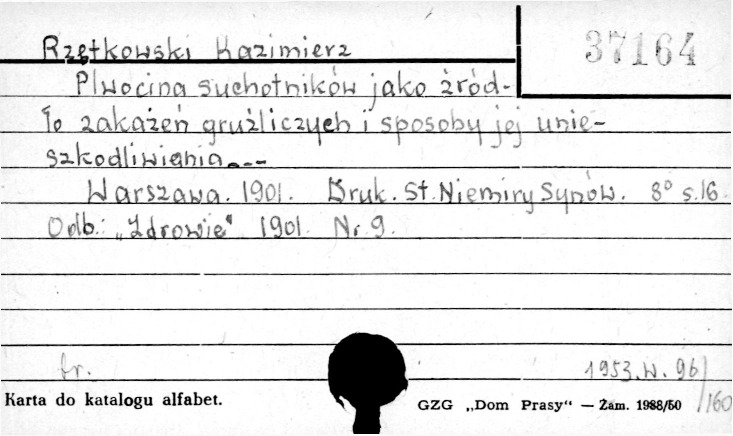 Rzętkowski Kazimierz
37164
Plwocina suchotników jako źród-
ło zakażeń gruźliczych i sposoby jej unie-
szkodliwienia...
Warszawa. 1901. Druk. St. Niemiry Synów. 8° s. 16.
Odb.: „Zdrowie" 1901. Nr. 9.
fr.
1953.W. 96/
/160
Karta do katalogu alfabet.
GZG „Dom Prasy“ — Zam. 1988/50